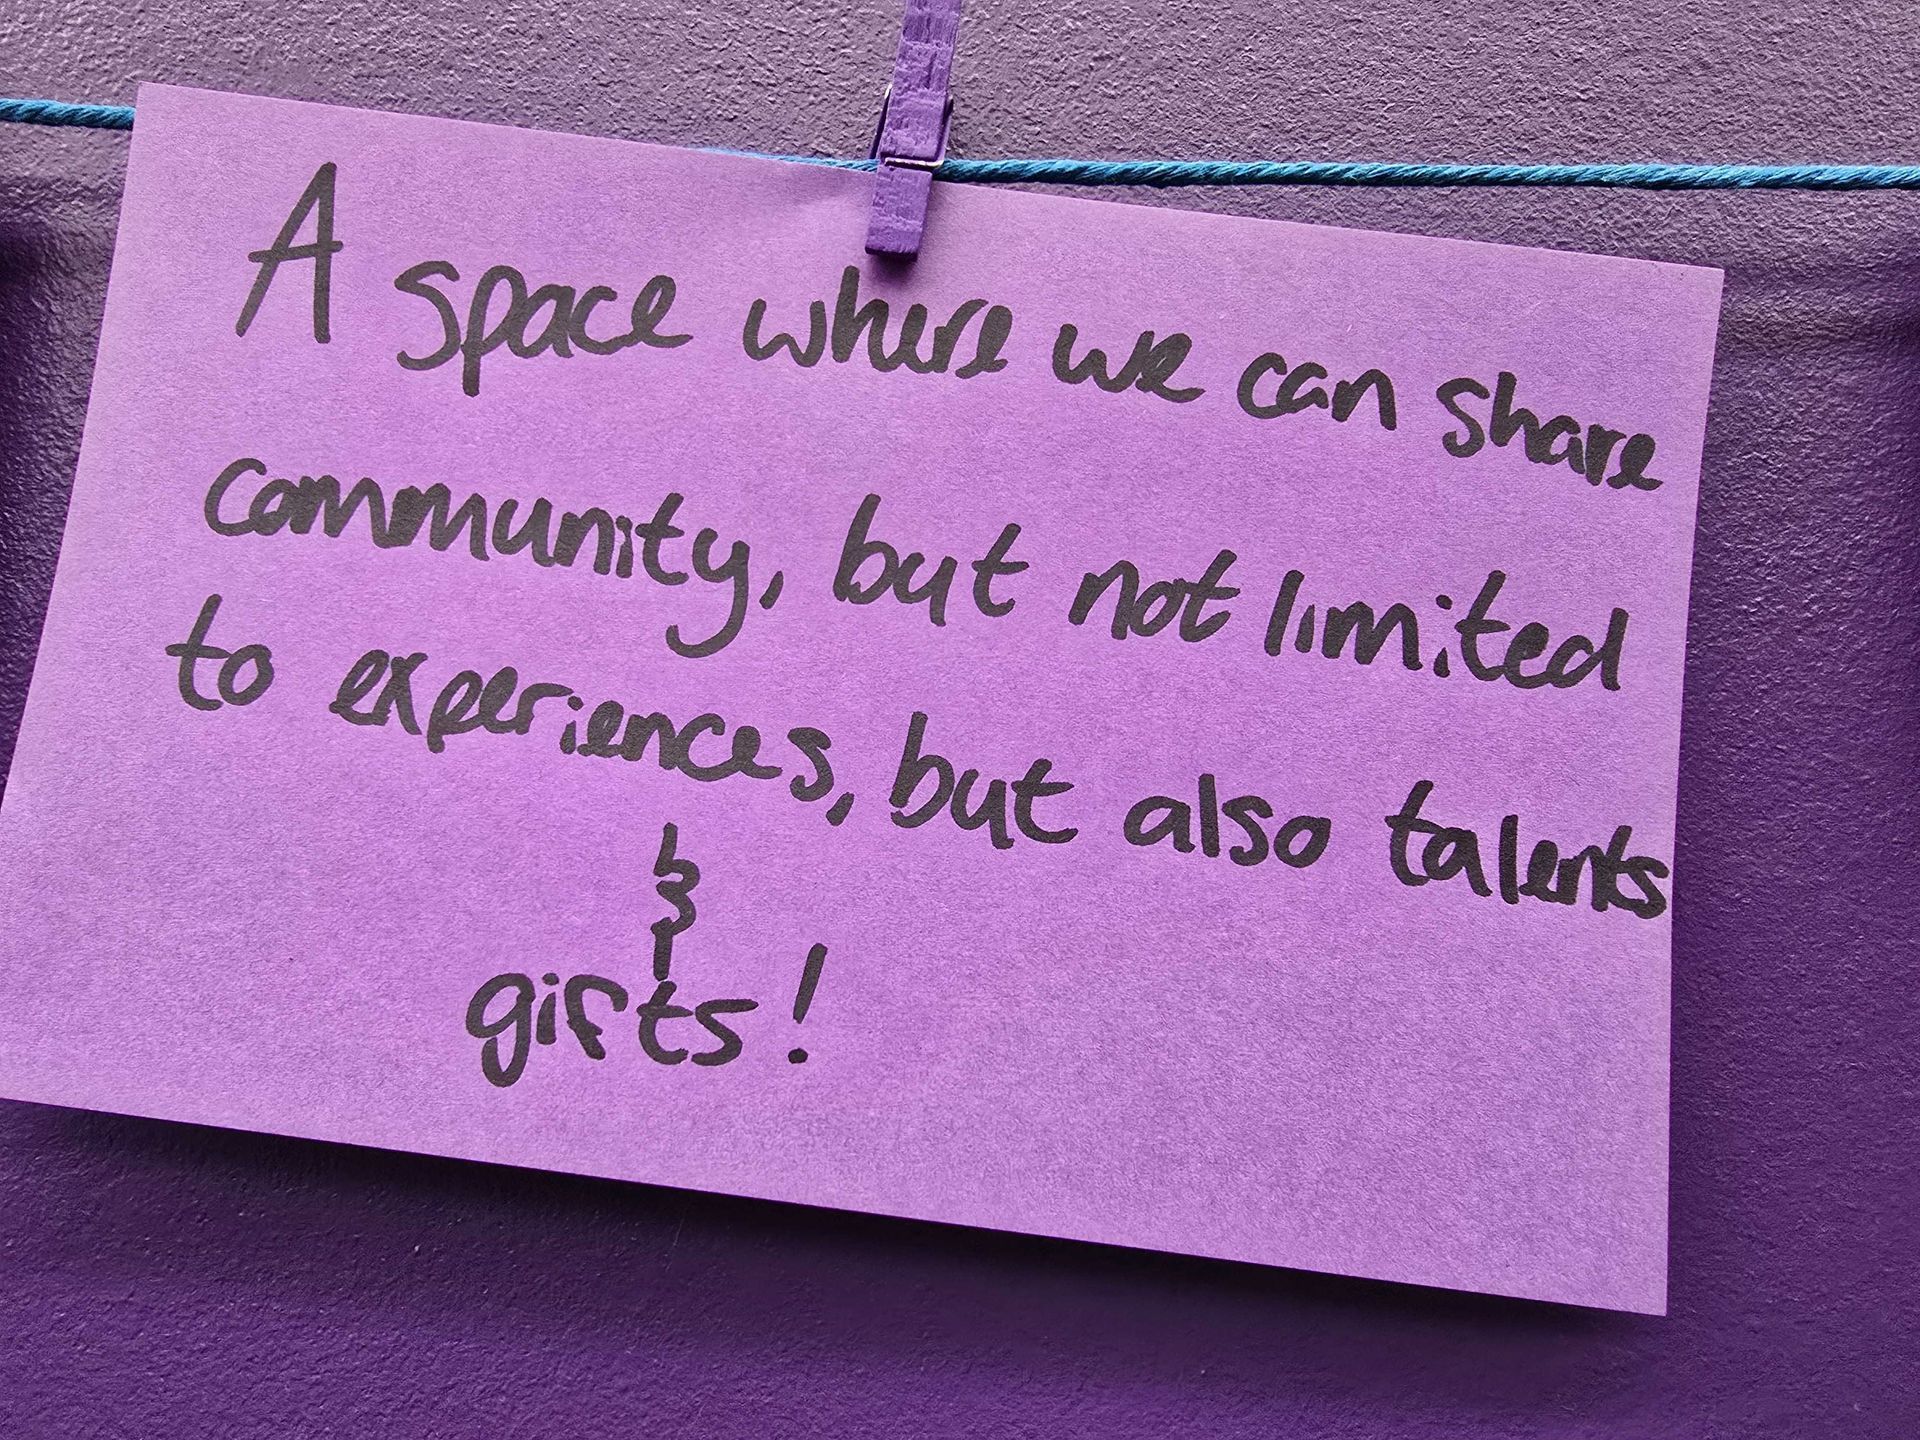 A space where we can share
community, but not limited
to experiences, but also talents
&
gifts!